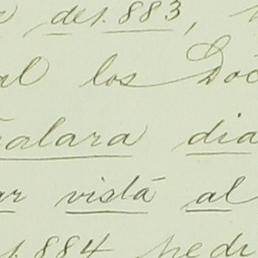 de 1.883,
al los Doc
alara dia
ar vista al
1.884 pedi